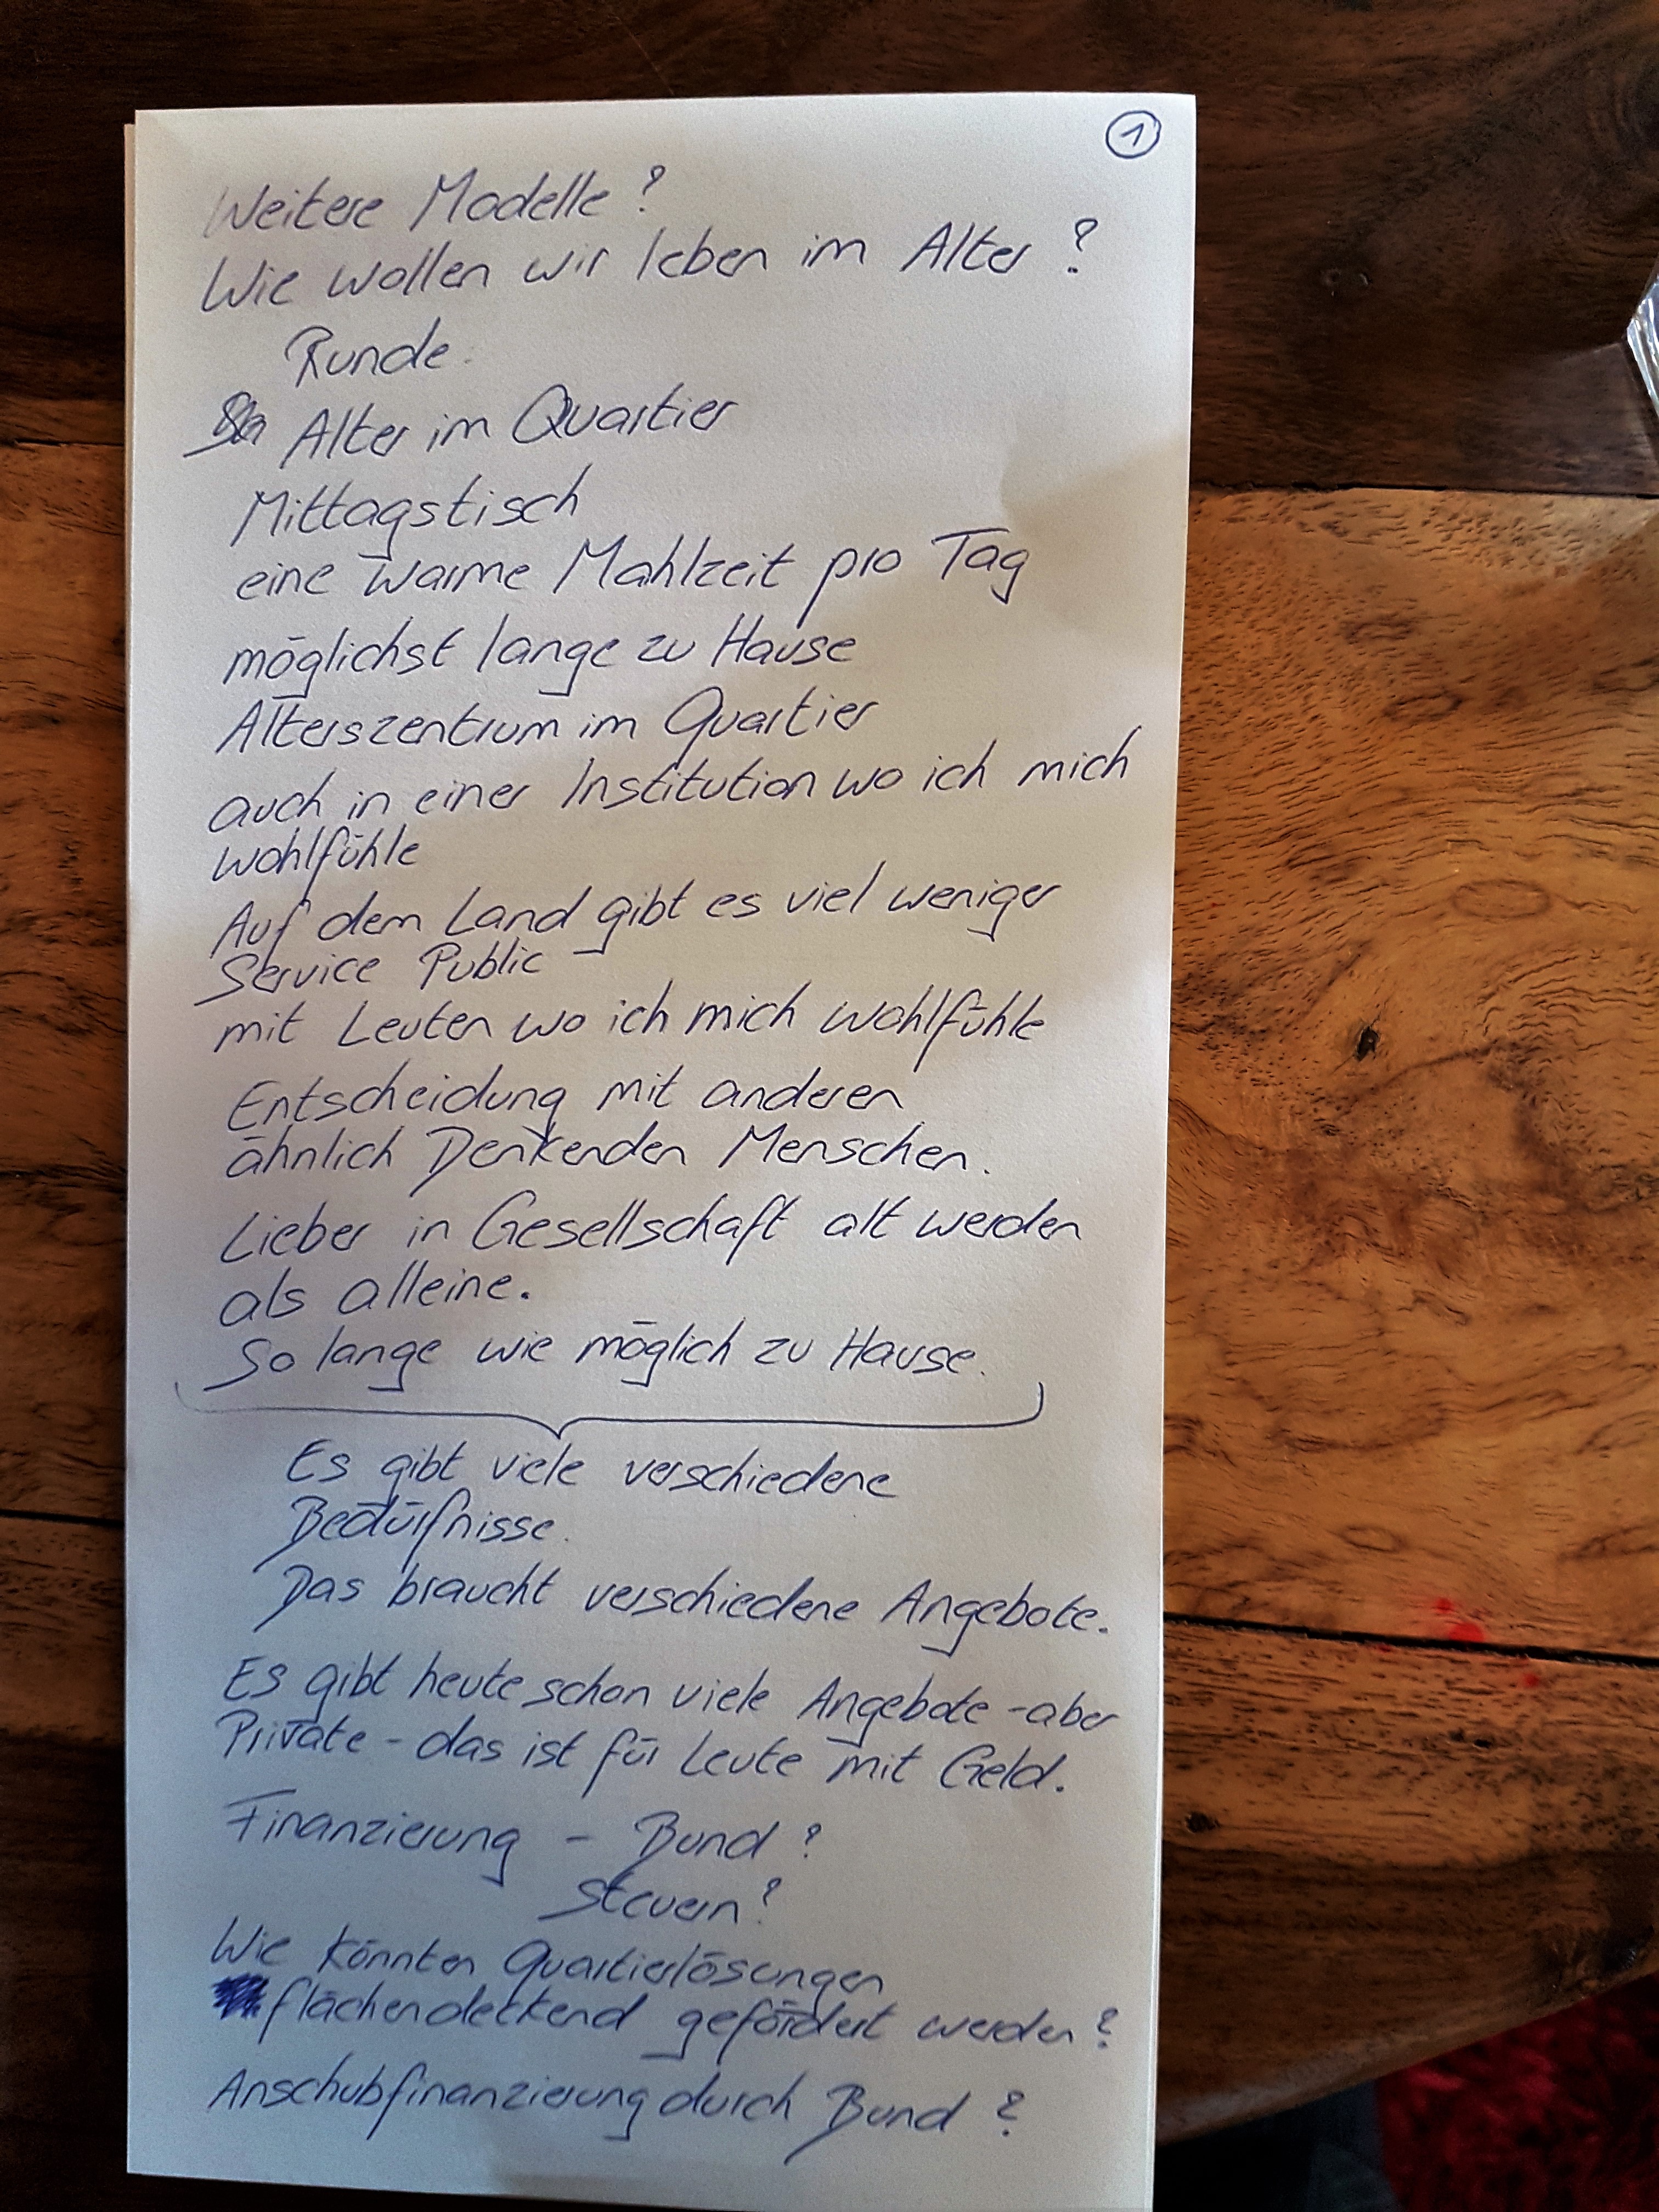 1
Weitere Modelle ?
Wie wollen wir leben im Alter ?
Runde.
Alter im Quartier
Mittagstisch
eine warme Mahlzeit pro Tag
möglichst lange zu Hause
Alterszentrum im Quartier
auch in einer Institution wo ich mich
wohlfühle
Auf dem Land gibt es viel weniger
Service Public
mit Leuten wo ich mich wohlfühle
Entscheidung mit anderen
ähnlich Denkenden Menschen.
Lieber in Gesellschaft alt werden
als alleine.
So lange wie möglich zu Hause.
Es gibt viele verschiedene
Bedürfnisse.
Das braucht verschiedene Angebote.
Es gibt heute schon viele Angebote - aber
Private - das ist für Leute mit Geld.
Finanzierung - Bund ?
Steuern?
Wie könnten Quartierlösungen
flächendeckend gefördert werden ?
Anschubfinanzierung durch Bund ?